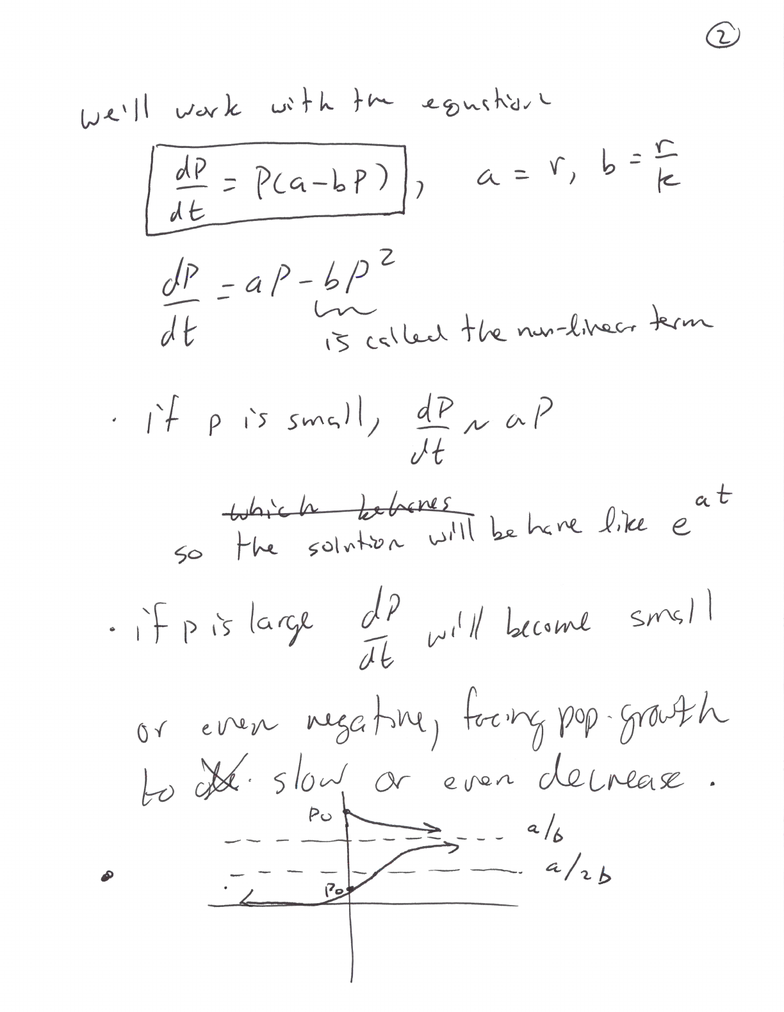 ②
we'll work with the equation
dP/dt = P(a-bP), a = r, b = r/k
dP/dt = aP - bP²
is called the non-linear term
· if p is small, dP/dt ~ aP
which behaves
so the solution will behave like e^at
· if p is large dp/dt will become small
or even negative, forcing pop. growth
to slow or even decrease.
P0
a/b
a/2b
P0